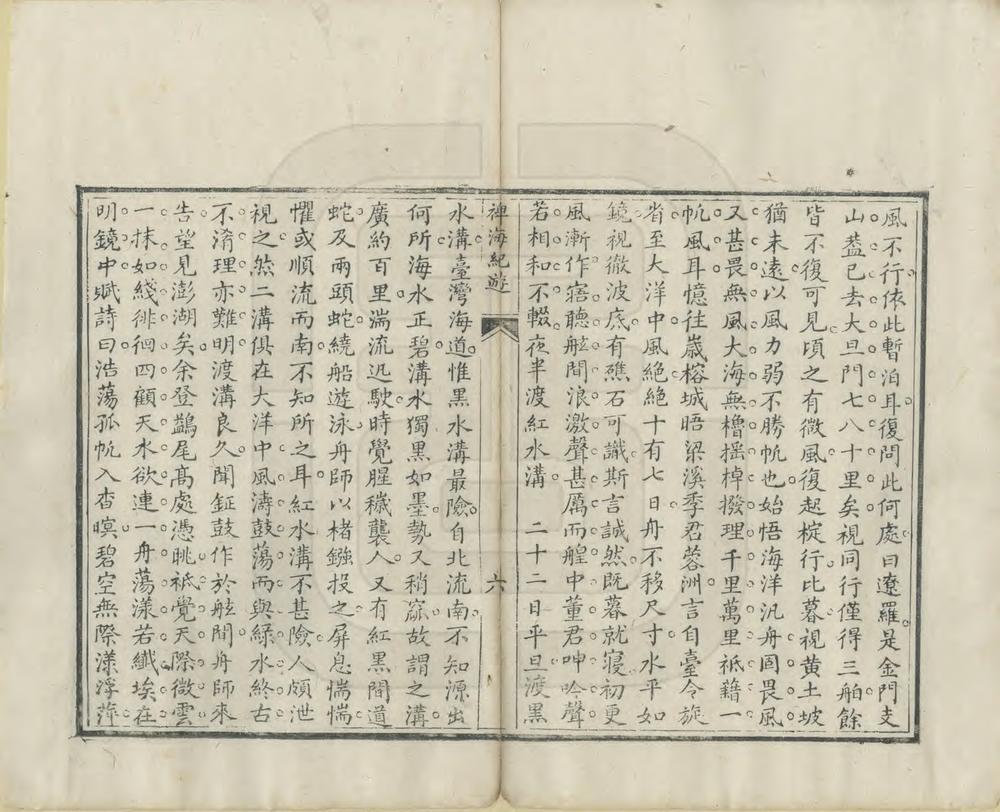 風不行依此暫泊耳復問此何處曰遼羅是金門支
山蓋已去大旦門七八十里矣視同行僅得三舶餘
皆不復可見頃之有微風復起椗行比暮視黃土坡
猶未遠以風力弱不勝帆也始悟海洋汎舟固畏風
又甚畏無風大海無櫓搖棹撥理千里萬里祗籍一
帆風耳憶往嵗榕城晤梁溪季君蓉洲言自臺令旋
省至大洋中風絶絶十有七日舟不移尺寸水平如
鏡視徹波底有礁石可識斯言誠然既暮就寢初更
風漸作寤聽舷間浪激聲甚厲而艎中董君呻吟聲
若相和不輟夜半渡紅水溝　二十二日平旦渡黑
裨海紀遊　六
水溝臺灣海道惟黑水溝最險自北流南不知源出
何所海水正碧溝水獨黑如墨勢又稍窳故謂之溝
廣約百里湍流迅駛時覺腥穢襲人又有紅黑間道
蛇及兩頭蛇繞船遊泳舟師以楮鏹投之屏息惴惴
懼或順流而南不知所之耳紅水溝不甚險人頗泄
視之然二溝俱在大洋中風濤鼓蕩而與綠水終古
不淆理亦難明渡溝良久聞鉦鼓作於舷間舟師來
告望見澎湖矣余登鷁尾高處憑眺祗覺天際微雲
一抹如綫徘徊四顧天水欲連一舟蕩漾若纖埃在
明鏡中賦詩曰浩蕩孤帆入杳暝碧空無際漾浮萍